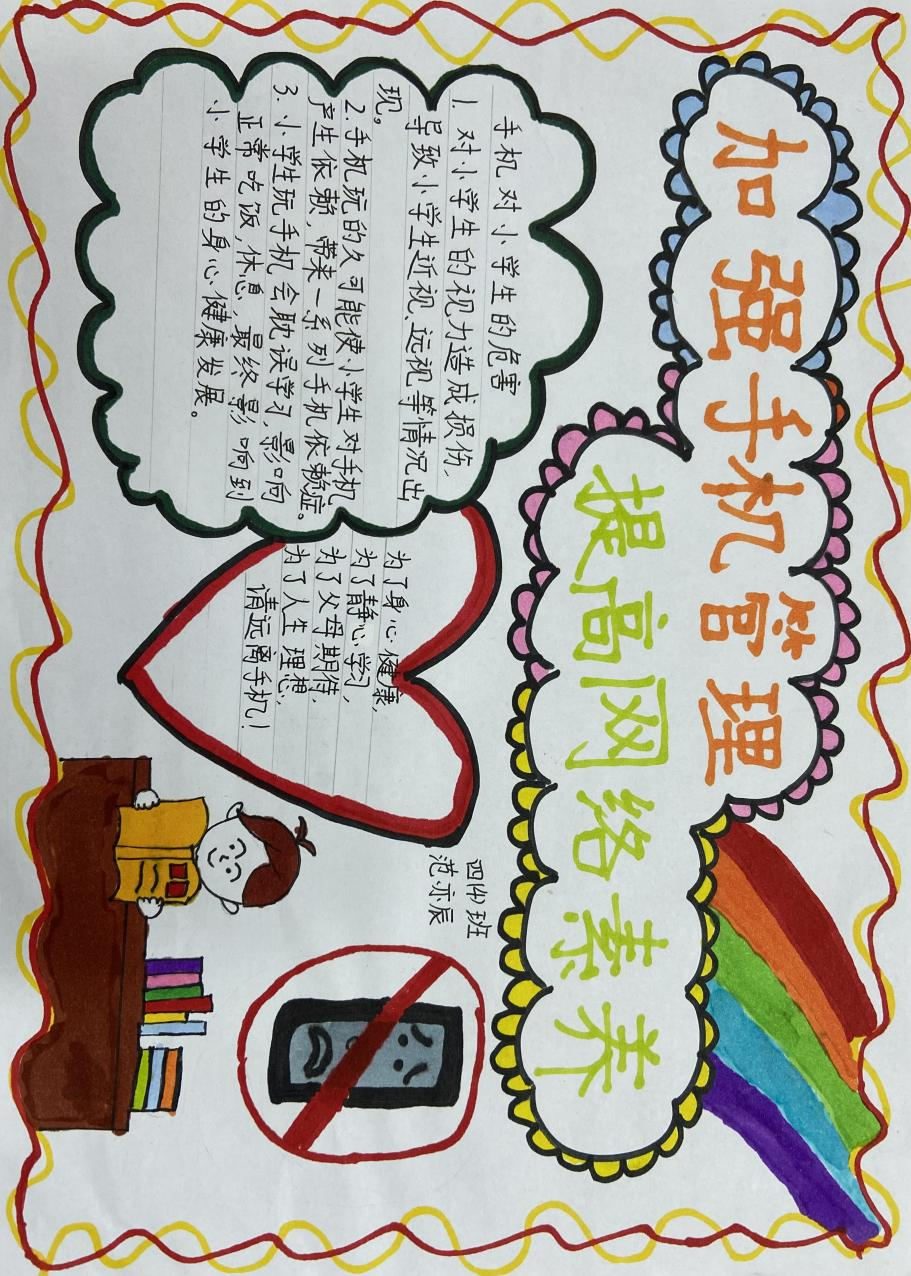 加强手机管理
提高网络素养
手机对小学生的危害
1.对小学生的视力造成损伤,
导致小学生近视、远视等情况出
现。
2.手机玩的久可能使小学生对手机
产生依赖,带来一系列手机依赖症。
3.小学生玩手机会耽误学习,影响
正常吃饭,休息,最终影响到
小学生的身心健康发展。
为了身心健康,
为了静心学习,
为了父母期待,
为了人生理想,
请远离手机!
四(4)班
范亦辰